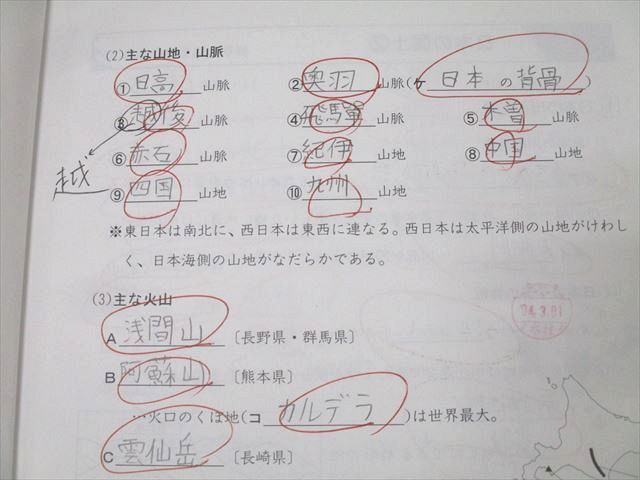 (2)主な山地・山脈
①日高山脈 ②奥羽山脈(ケ 日本の背骨)
③越後山脈 ④飛驒山脈 ⑤木曽山脈
越
⑥赤石山脈 ⑦紀伊山地 ⑧中国山地
⑨四国山地 ⑩九州山地
※東日本は南北に、西日本は東西に連なる。西日本は太平洋側の山地がけわし
く、日本海側の山地がなだらかである。
(3)主な火山
A 浅間山〔長野県・群馬県〕
B 阿蘇山〔熊本県〕
…火口のくぼ地(コ カルデラ)は世界最大。
C 雲仙岳〔長崎県〕